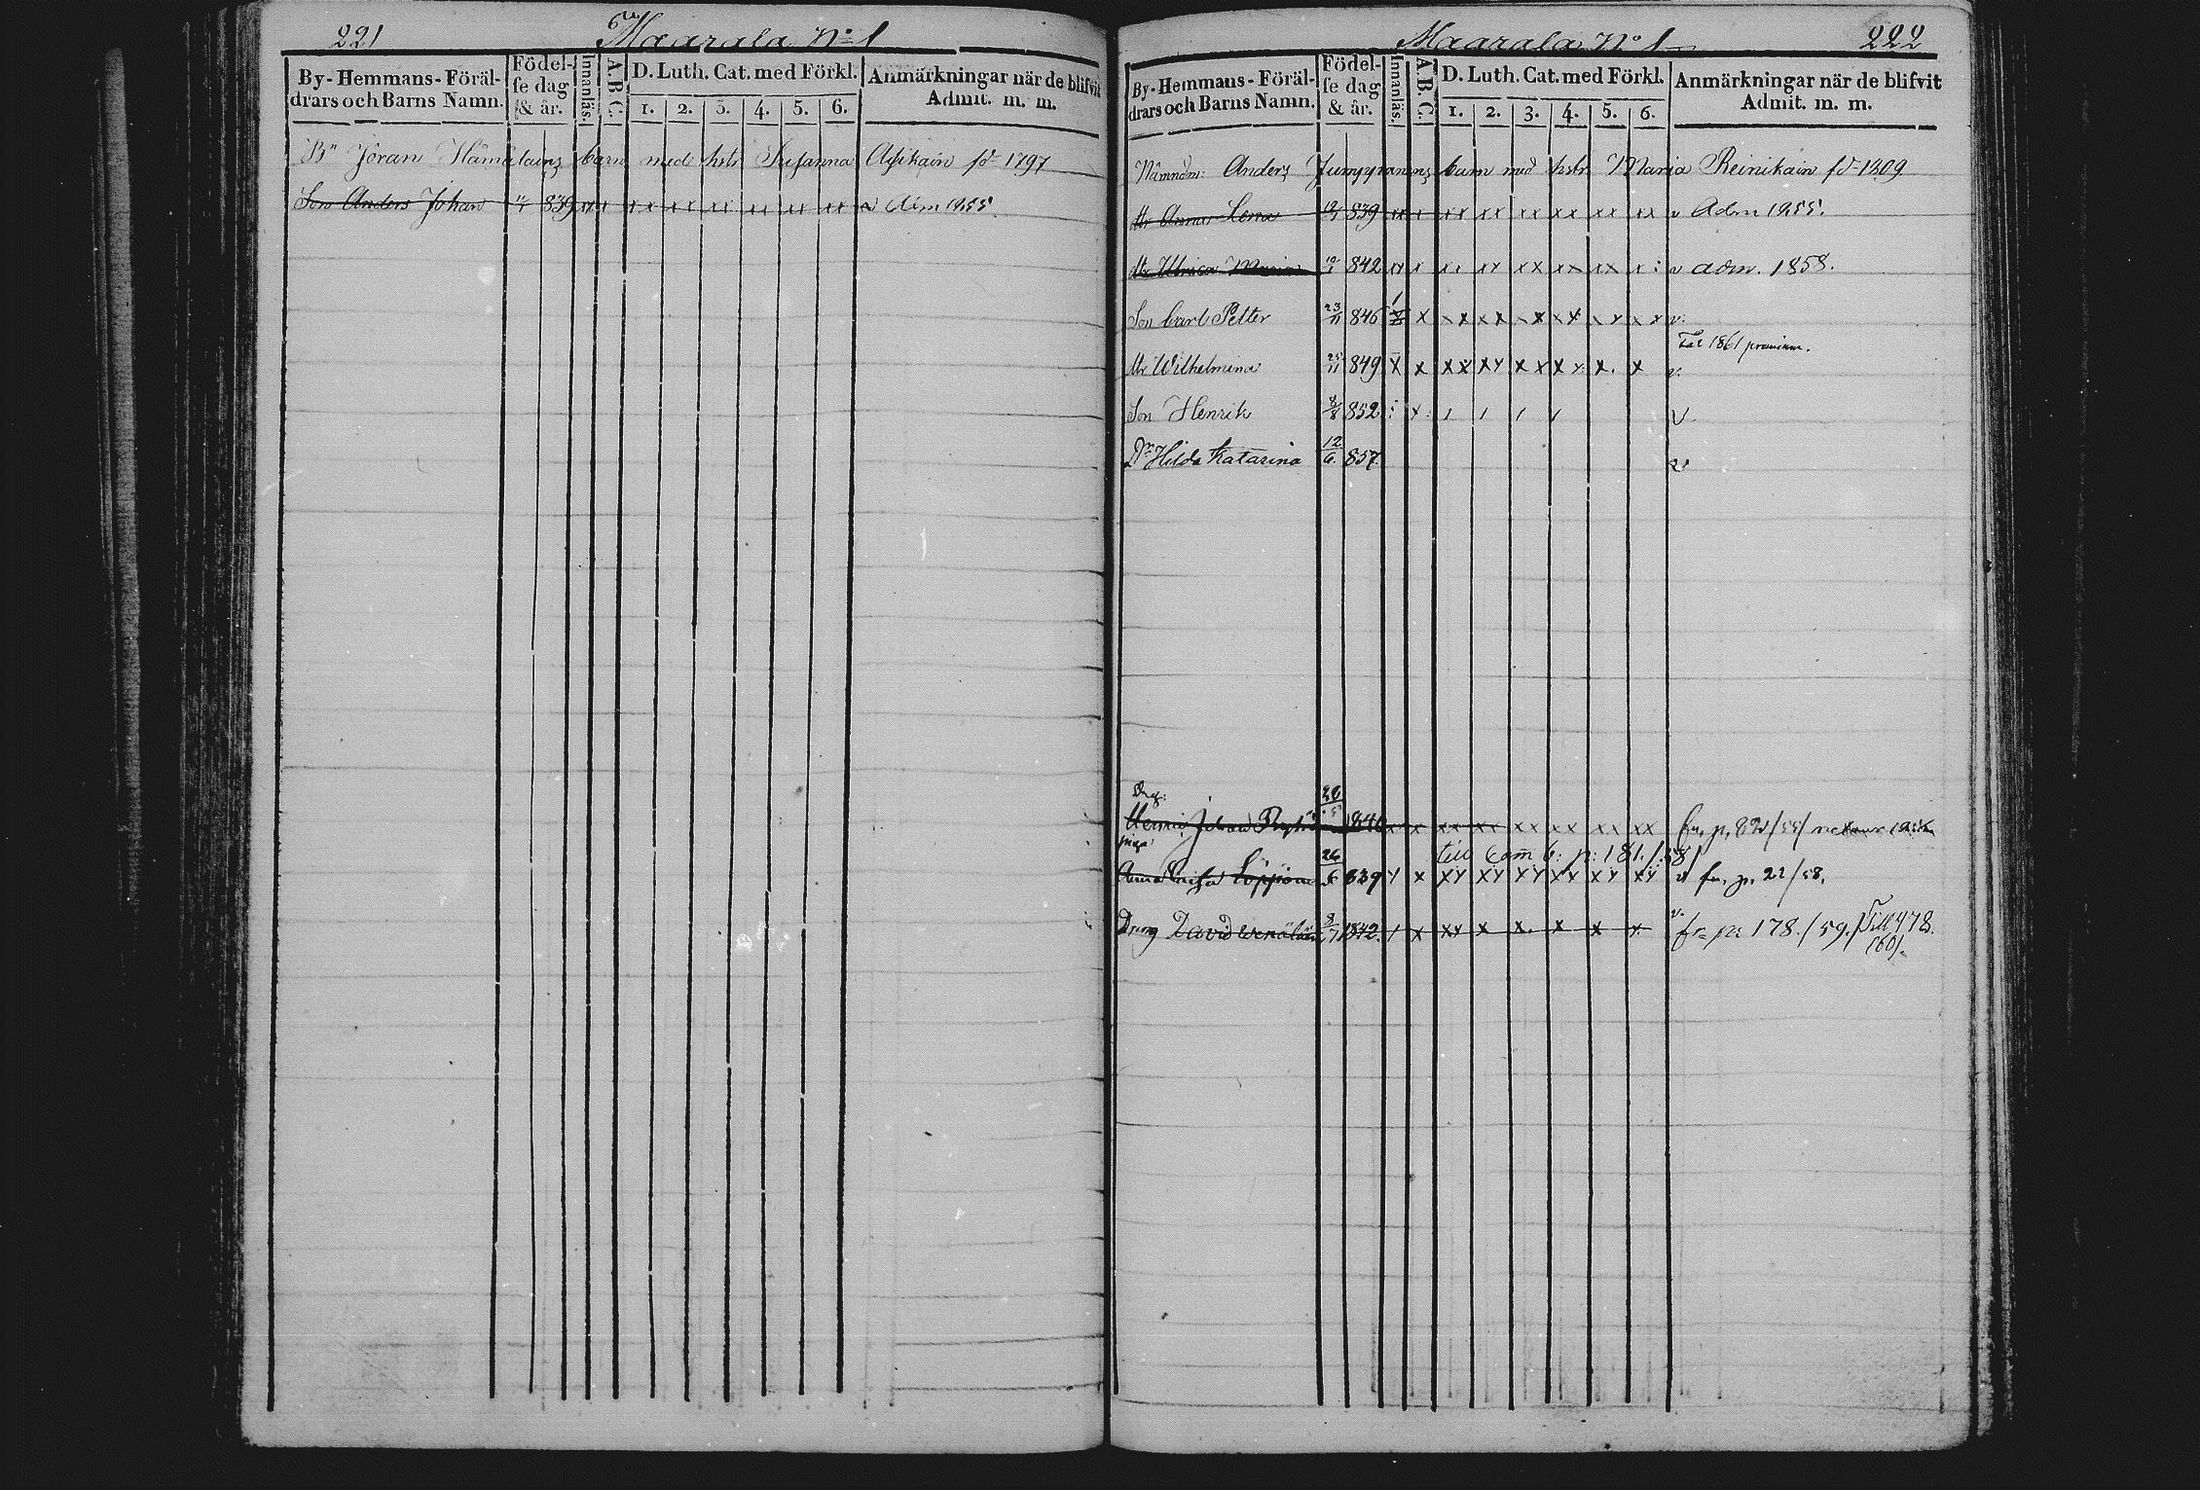 221
Maarala No 1
By-Hemmans-Föräl-
drars och Barns Namn.
Födel-
se dag
& år.
Innanläs.
A.B.C.
D. Luth. Cat. med Förkl.
1. 2. 3. 4. 5. 6.
Anmärkningar när de blifvit
Admit. m. m.
Bn Jöran Hämäläins barn med hstr Susanna Asikain fd 1797
Son Anders Johan 839 xx xx xx xx xx xx v Adm 1855.
Maarala No 1
222
By-Hemmans-Föräl-
drars och Barns Namn.
Födel-
se dag
& år.
Innanläs.
A.B.C.
D. Luth. Cat. med Förkl.
1. 2. 3. 4. 5. 6.
Anmärkningar när de blifvit
Admit. m. m.
Nämndm: Anders Jumppanens barn med hstr Maria Reinikain fd 1809
dtr Anna Lena 839 xx x xx xx xx xx xx xx v Adm 1855.
dtr Ulrica Maria 842 xx x xx xx xx xx xx x v adm. 1858.
Son Carl Petter 23/11 846 x xx xx xx xx xx xx v.
Fåt 1861 premium.
dtr Wilhelmina 25/11 849 x x xx xx xx xx x. x v.
Son Henrik 8/8 852 x v
Dr Hilda Katarina 12/6 857 v
Drg:
Johan 26 840 x x xx xx xx xx xx xx fr. p. 82/55/
till p: 181./58/
piga
Anna Lovisa Löppönen 26/6 839 x x xx xx xx xx xx xx v fr. p. 22/58.
Dreng David Wenäläin 8/7 1842. x xx x x. x x x. v. fr. p: 178./59./Till 478.
/60/.